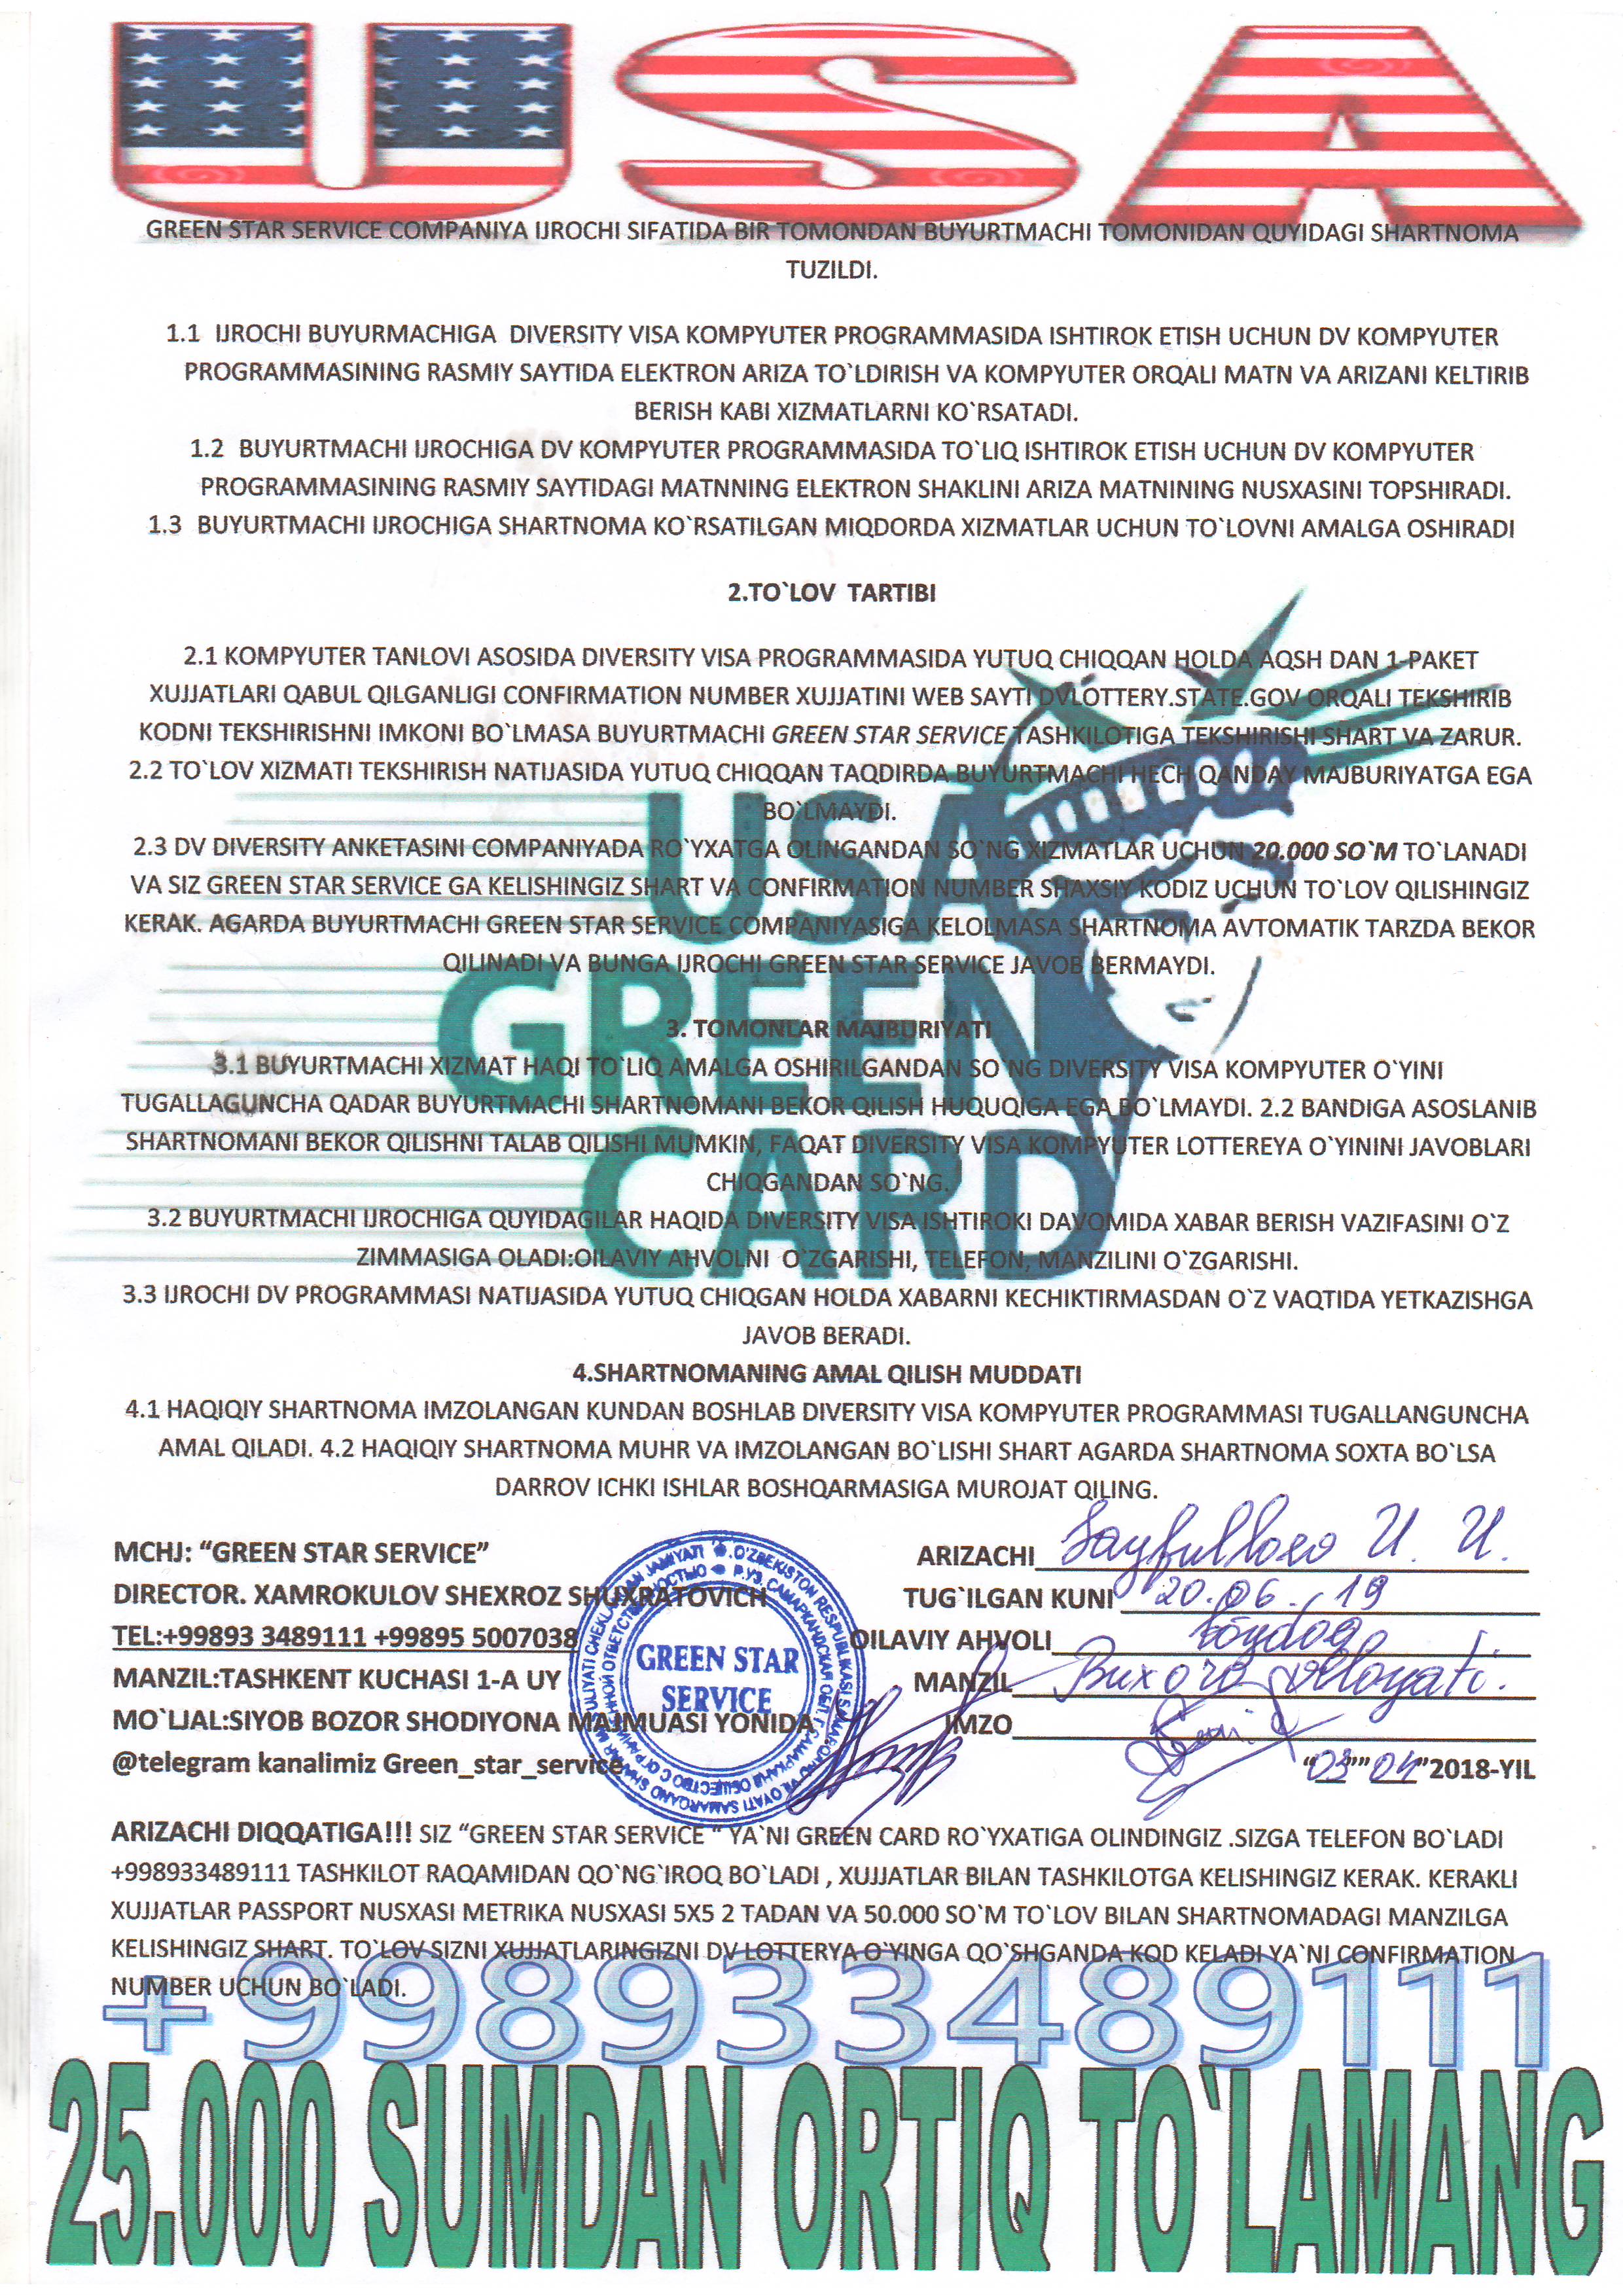 USA
GREEN STAR SERVICE COMPANIYA IJROCHI SIFATIDA BIR TOMONDAN BUYURTMACHI TOMONIDAN QUYIDAGI SHARTNOMA
TUZILDI.
1.1 IJROCHI BUYURMACHIGA DIVERSITY VISA KOMPYUTER PROGRAMMASIDA ISHTIROK ETISH UCHUN DV KOMPYUTER
PROGRAMMASINING RASMIY SAYTIDA ELEKTRON ARIZA TO`LDIRISH VA KOMPYUTER ORQALI MATN VA ARIZANI KELTIRIB
BERISH KABI XIZMATLARNI KO`RSATADI.
1.2 BUYURTMACHI IJROCHIGA DV KOMPYUTER PROGRAMMASIDA TO`LIQ ISHTIROK ETISH UCHUN DV KOMPYUTER
PROGRAMMASINING RASMIY SAYTIDAGI MATNNING ELEKTRON SHAKLINI ARIZA MATNINING NUSXASINI TOPSHIRADI.
1.3 BUYURTMACHI IJROCHIGA SHARTNOMA KO`RSATILGAN MIQDORDA XIZMATLAR UCHUN TO`LOVNI AMALGA OSHIRADI
2.TO`LOV TARTIBI
2.1 KOMPYUTER TANLOVI ASOSIDA DIVERSITY VISA PROGRAMMASIDA YUTUQ CHIQQAN HOLDA AQSH DAN 1-PAKET
XUJJATLARI QABUL QILGANLIGI CONFIRMATION NUMBER XUJJATINI WEB SAYTI DVLOTTERY.STATE.GOV ORQALI TEKSHIRIB
KODNI TEKSHIRISHNI IMKONI BO`LMASA BUYURTMACHI GREEN STAR SERVICE TASHKILOTIGA TEKSHIRISHI SHART VA ZARUR.
2.2 TO`LOV XIZMATI TEKSHIRISH NATIJASIDA YUTUQ CHIQQAN TAQDIRDA BUYURTMACHI HECH QANDAY MAJBURIYATGA EGA
BO`LMAYDI.
2.3 DV DIVERSITY ANKETASINI COMPANIYADA RO`YXATGA OLINGANDAN SO`NG XIZMATLAR UCHUN 20.000 SO`M TO`LANADI
VA SIZ GREEN STAR SERVICE GA KELISHINGIZ SHART VA CONFIRMATION NUMBER SHAXSIY KODIZ UCHUN TO`LOV QILISHINGIZ
KERAK. AGARDA BUYURTMACHI GREEN STAR SERVICE COMPANIYASIGA KELOLMASA SHARTNOMA AVTOMATIK TARZDA BEKOR
QILINADI VA BUNGA IJROCHI GREEN STAR SERVICE JAVOB BERMAYDI.
USA
GREEN
CARD
3. TOMONLAR MAJBURIYATI
3.1 BUYURTMACHI XIZMAT HAQI TO`LIQ AMALGA OSHIRILGANDAN SO`NG DIVERSITY VISA KOMPYUTER O`YINI
TUGALLAGUNCHA QADAR BUYURTMACHI SHARTNOMANI BEKOR QILISH HUQUQIGA EGA BO`LMAYDI. 2.2 BANDIGA ASOSLANIB
SHARTNOMANI BEKOR QILISHNI TALAB QILISHI MUMKIN, FAQAT DIVERSITY VISA KOMPYUTER LOTTEREYA O`YININI JAVOBLARI
CHIQGANDAN SO`NG.
3.2 BUYURTMACHI IJROCHIGA QUYIDAGILAR HAQIDA DIVERSITY VISA ISHTIROKI DAVOMIDA XABAR BERISH VAZIFASINI O`Z
ZIMMASIGA OLADI:OILAVIY AHVOLNI O`ZGARISHI, TELEFON, MANZILINI O`ZGARISHI.
3.3 IJROCHI DV PROGRAMMASI NATIJASIDA YUTUQ CHIQGAN HOLDA XABARNI KECHIKTIRMASDAN O`Z VAQTIDA YETKAZISHGA
JAVOB BERADI.
4.SHARTNOMANING AMAL QILISH MUDDATI
4.1 HAQIQIY SHARTNOMA IMZOLANGAN KUNDAN BOSHLAB DIVERSITY VISA KOMPYUTER PROGRAMMASI TUGALLANGUNCHA
AMAL QILADI. 4.2 HAQIQIY SHARTNOMA MUHR VA IMZOLANGAN BO`LISHI SHART AGARDA SHARTNOMA SOXTA BO`LSA
DARROV ICHKI ISHLAR BOSHQARMASIGA MUROJAT QILING.
MCHJ: “GREEN STAR SERVICE”
DIRECTOR. XAMROKULOV SHEXROZ SHUXRATOVICH
TEL:+99893 3489111 +99895 5007038
MANZIL:TASHKENT KUCHASI 1-A UY
MO`LJAL:SIYOB BOZOR SHODIYONA MAJMUASI YONIDA
@telegram kanalimiz Green_star_service
GREEN STAR
SERVICE
ARIZACHI U. U.
TUG`ILGAN KUNI 20.06.19
OILAVIY AHVOLI
MANZIL Buxoro viloyati.
IMZO
“03””04”2018-YIL
ARIZACHI DIQQATIGA!!! SIZ “GREEN STAR SERVICE “ YA`NI GREEN CARD RO`YXATIGA OLINDINGIZ .SIZGA TELEFON BO`LADI
+998933489111 TASHKILOT RAQAMIDAN QO`NG`IROQ BO`LADI , XUJJATLAR BILAN TASHKILOTGA KELISHINGIZ KERAK. KERAKLI
XUJJATLAR PASSPORT NUSXASI METRIKA NUSXASI 5X5 2 TADAN VA 50.000 SO`M TO`LOV BILAN SHARTNOMADAGI MANZILGA
KELISHINGIZ SHART. TO`LOV SIZNI XUJJATLARINGIZNI DV LOTTERYA O`YINGA QO`SHGANDA KOD KELADI YA`NI CONFIRMATION
NUMBER UCHUN BO`LADI.
+998933489111
25.000 SUMDAN ORTIQ TO`LAMANG